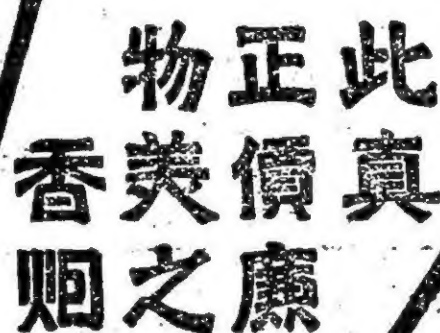 此真
正價廉
物美之
香烟